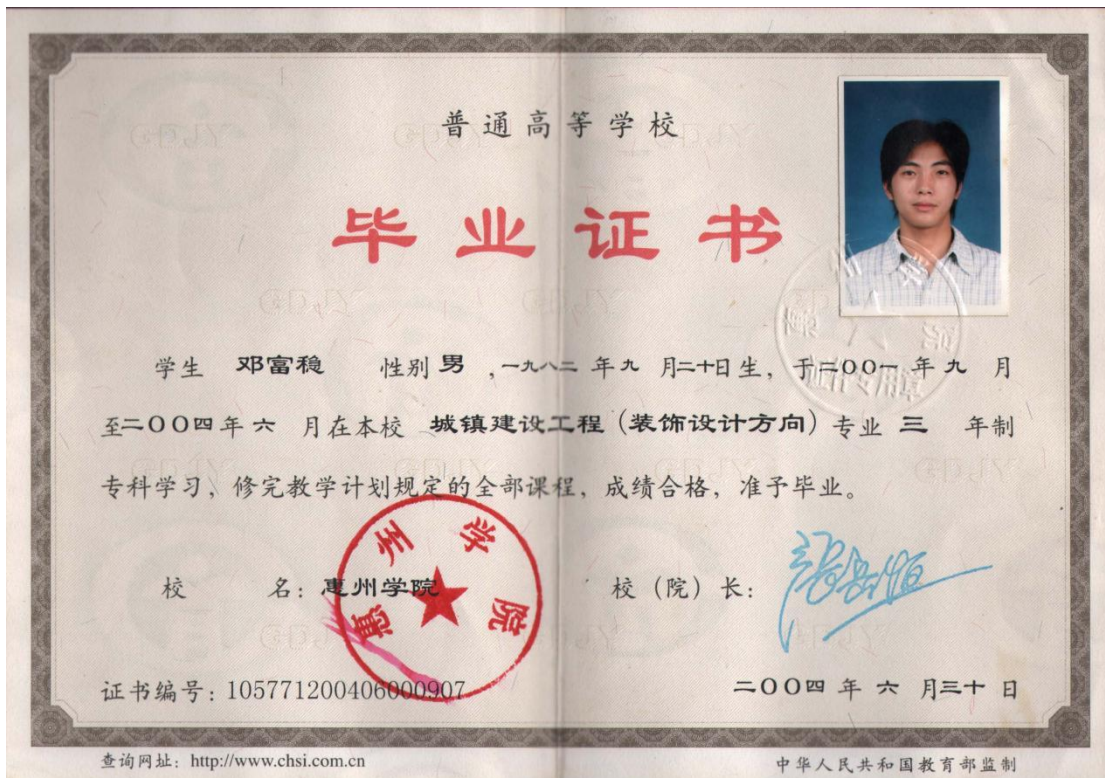 普通高等学校
毕业证书
学生 邓富稳 性别 男 ,一九八二 年 九 月二十日生，于二〇〇一 年 九 月
至二〇〇四年 六 月在本校 城镇建设工程（装饰设计方向）专业 三 年制
专科学习，修完教学计划规定的全部课程，成绩合格，准予毕业。
惠州学院
校 名：惠州学院 校（院）长：
证书编号：105771200406000907 二〇〇四 年 六 月三十 日
查询网址：http://www.chsi.com.cn 中华人民共和国教育部监制